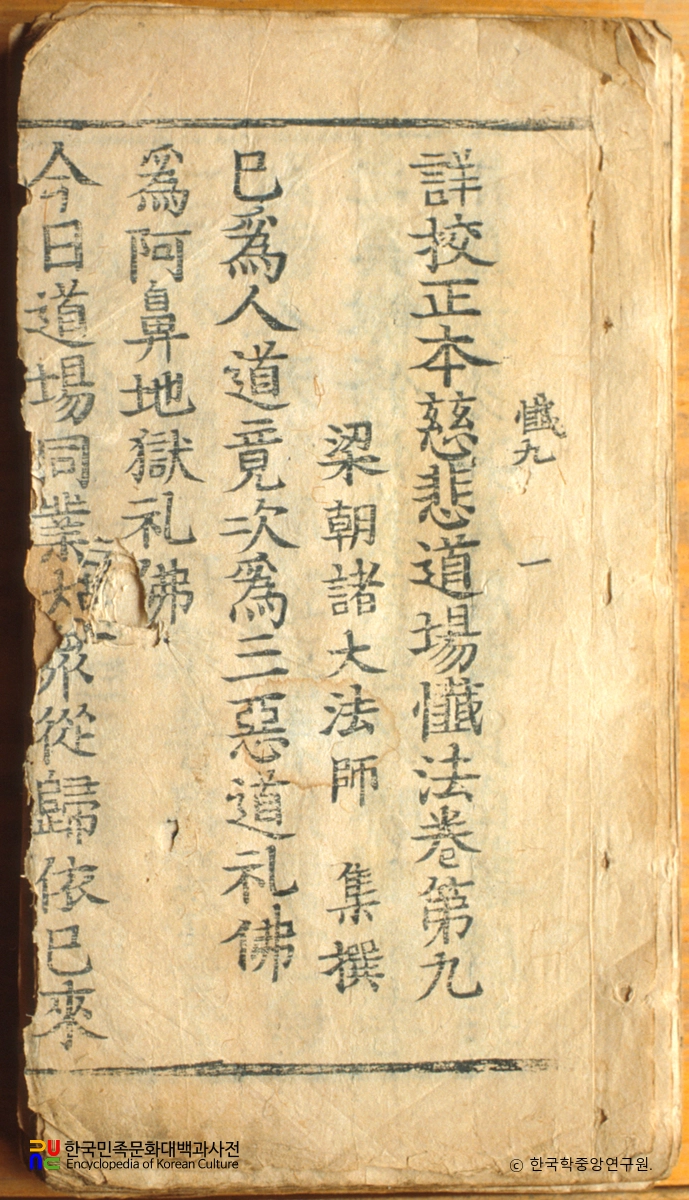 懺九 一
詳校正本慈悲道場懺法卷第九
梁朝諸大法師 集撰
已爲人道竟次爲三惡道礼佛
爲阿鼻地獄礼佛
今日道場同業 衆從歸依已來
한국민족문화대백과사전
Encyclopedia of Korean Culture
© 한국학중앙연구원.